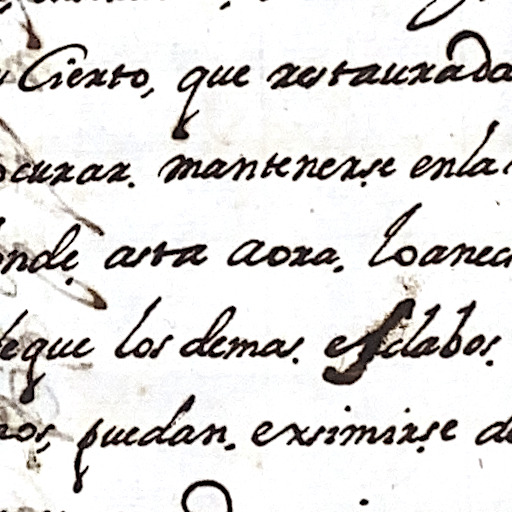 Cierto, que restaurada
ocurar. mantenerse enla
onde, asta aora. loanec
eque los demas. esclabos.
nos, puedan. exsimirse de